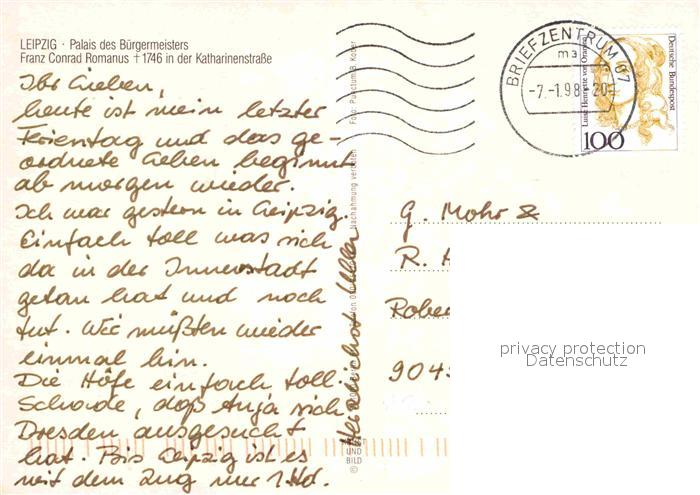 LEIPZIG · Palais des Bürgermeisters
Franz Conrad Romanus † 1746 in der Katharinenstraße
Ihr Lieben,
heute ist mein letzter
Ferientag und das ge-
ordnete Leben beginnt
ab morgen wieder.
Ich war gestern in Leipzig.
Einfach toll was sich
da in der Innenstadt
getan hat und noch
tut. Wir müßten wieder
einmal hin.
Die Höfe einfach toll.
Schade, daß Anja sich
Dresden ausgesucht
hat. Bis Leipzig ist es
mit dem Zug nur 1 Std.
Foto: Punctum/B. Kober
Nachahmung verboten
UND
BILD
©
BRIEFZENTRUM 07
ma
-7.-1.98-20
Deutsche Bundespost
Luise Henriette von Oranien
100
G. Mohr &
R. H
Rober
9045
privacy protection
Datenschutz